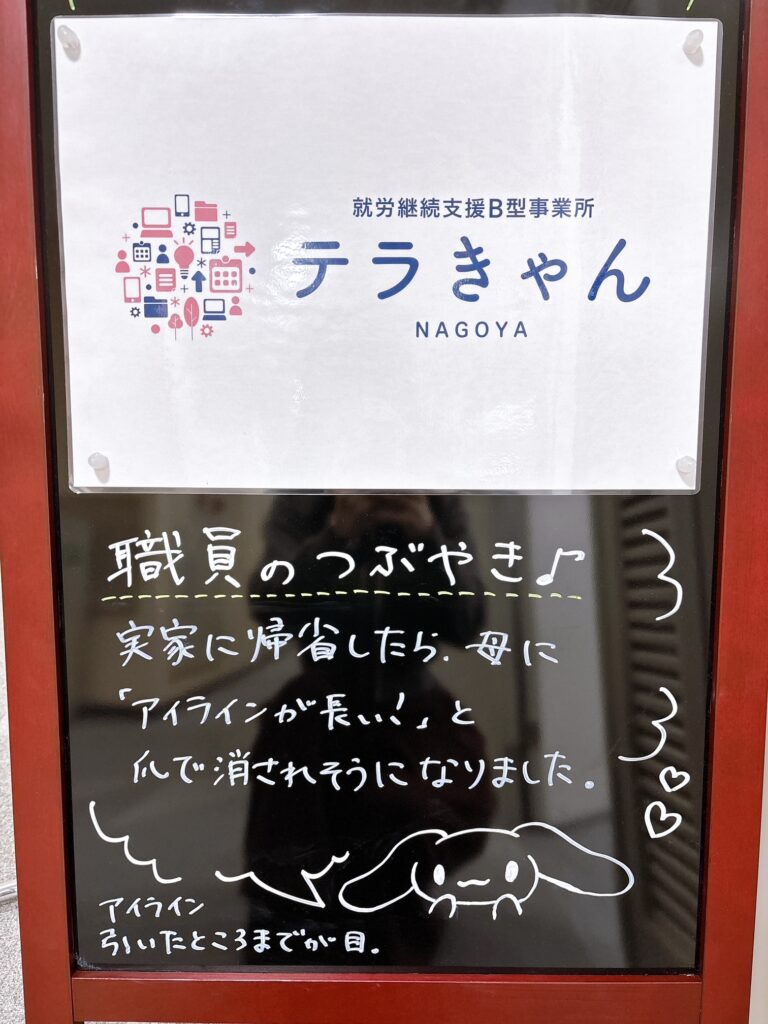 就労継続支援B型事業所
テラきゃん
NAGOYA
職員のつぶやき♪
実家に帰省したら、母に
「アイラインが長い！」と
爪で消されそうになりました。
アイライン
引いたところまでが目。